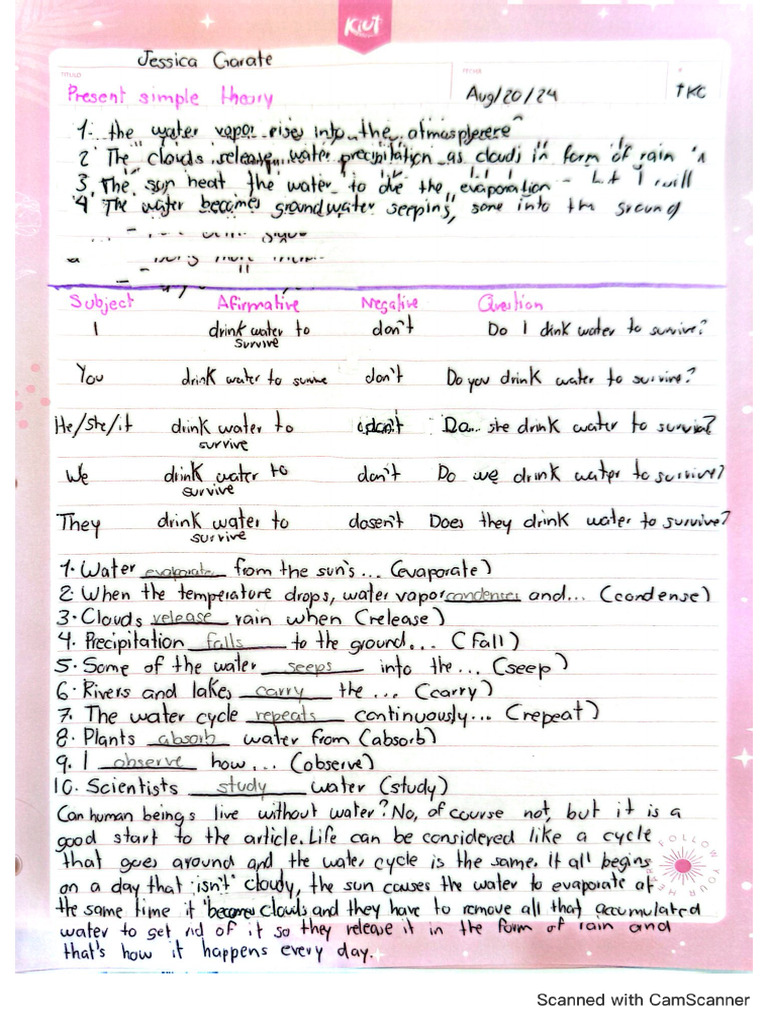 KIUT
Jessica Garate
TITULO
FECHA
Present simple theory
Aug/20/24
TKC
1. the water vapor rises into the atmospherere
2 The "clouds release" water precipitation as clouds in form of rain
3. The sun heat the water to the evaporation - I will
4 The water becomes groundwater seeping, some into the ground
Subject Afirmative Negative Question
I drink water to survive don't Do I dink water to survive?
You drink water to survive don't Do you drink water to survive?
He/she/it drink water to survive don't Do she drink water to
We drink water to survive don't Do we drink water to survive?
They drink water to survive dosen't Does they drink water to survive?
1. Water evaporate from the sun's... (evaporate)
2. When the temperature drops, water vapor condenses and... (condense)
3. Clouds release rain when (release)
4. Precipitation falls to the ground... (Fall)
5. Some of the water seeps into the... (seep)
6. Rivers and lakes carry the ... (carry)
7. The water cycle repeats continuously... (repeat)
8. Plants absorb water from (absorb)
9. I observe how... (observe)
10. Scientists study water (study)
Can human beings live without water? No, of course not, but it is a
good start to the article. Life can be considered like a cycle
that goes around and the water cycle is the same. It all begins
on a day that isn't cloudy, the sun causes the water to evaporate at
the same time it becomes clouds and they have to remove all that accumulated
water to get rid of it so they release it in the form of rain and
that's how it happens every day.
FOLLOW YOUR HEART
Scanned with CamScanner